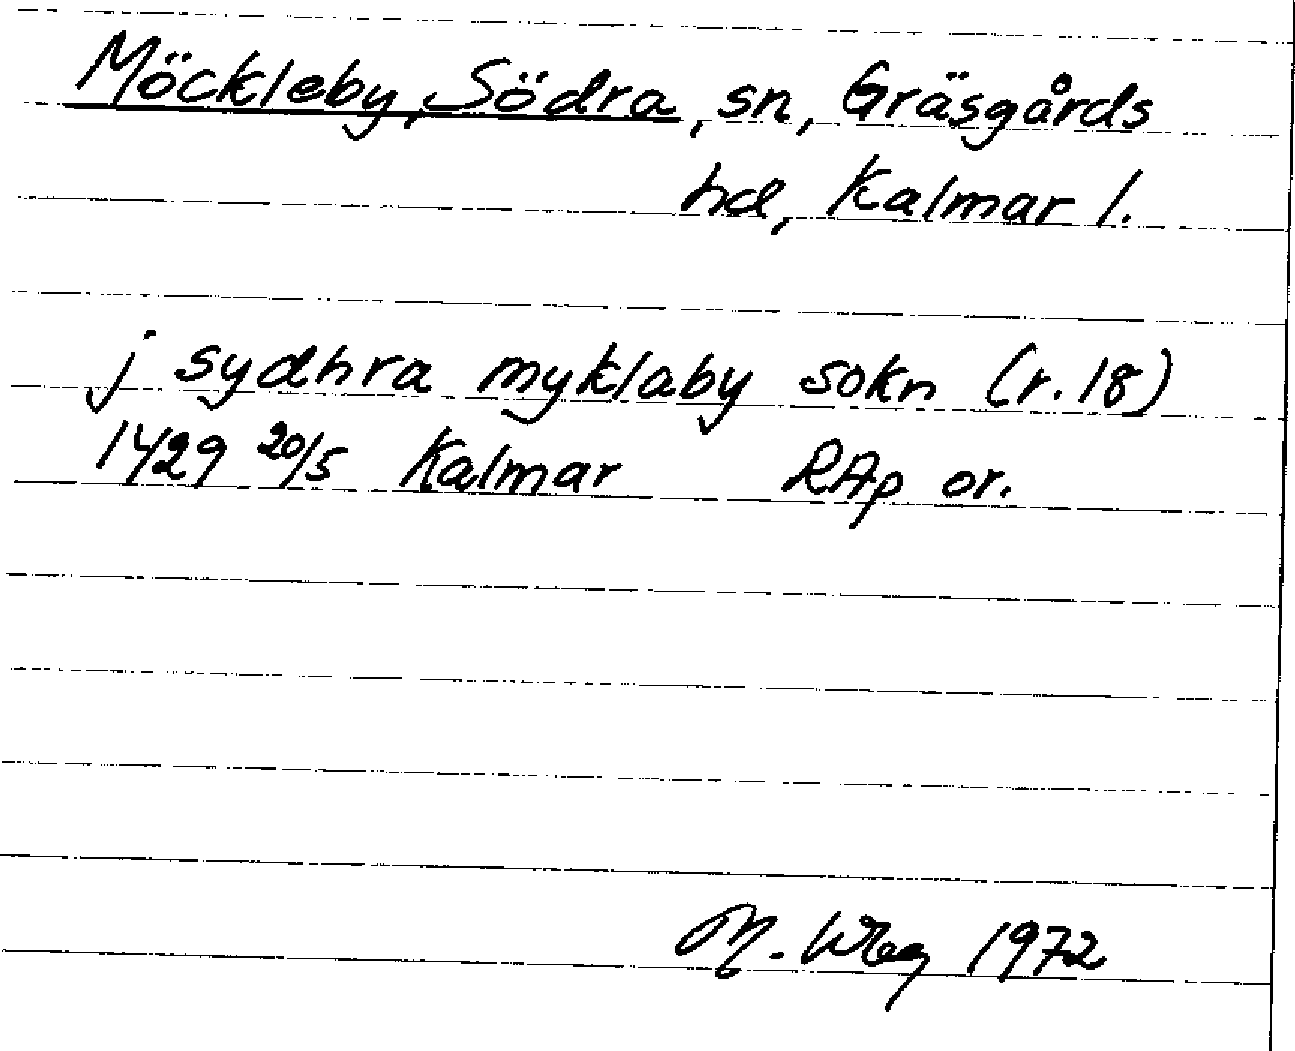 Möckleby, Södra, sn, Gräsgårds
hd, Kalmar l.
j sydhra myklaby sokn (r. 18)
1429 20/5 Kalmar RAp or.
M. 1972